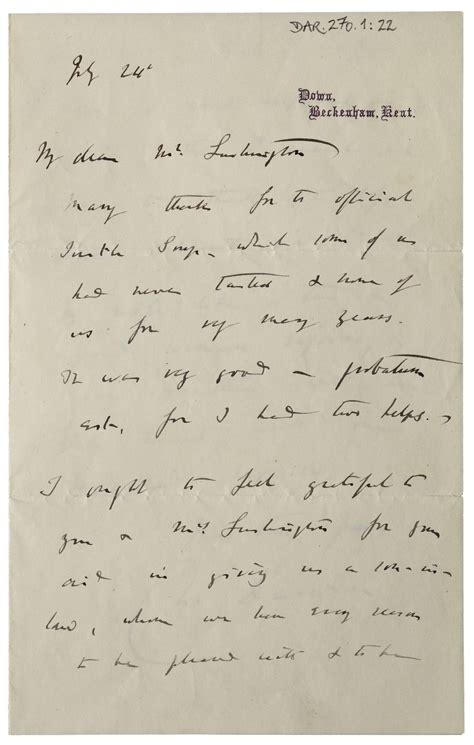 DAR.270.1:22
July 24th
Down,
Beckenham, Kent.
My dear Mr. Lushington
Many thanks for the official
Turtle Soup, which some of us
had never tasted & none of
us for very many years.
It was very good — probatum
est, for I had two helps.—
I ought to feel grateful to
you & Mrs. Lushington for your
aid in giving us a son-in-
law, whom we have every reason
to be pleased with & to be